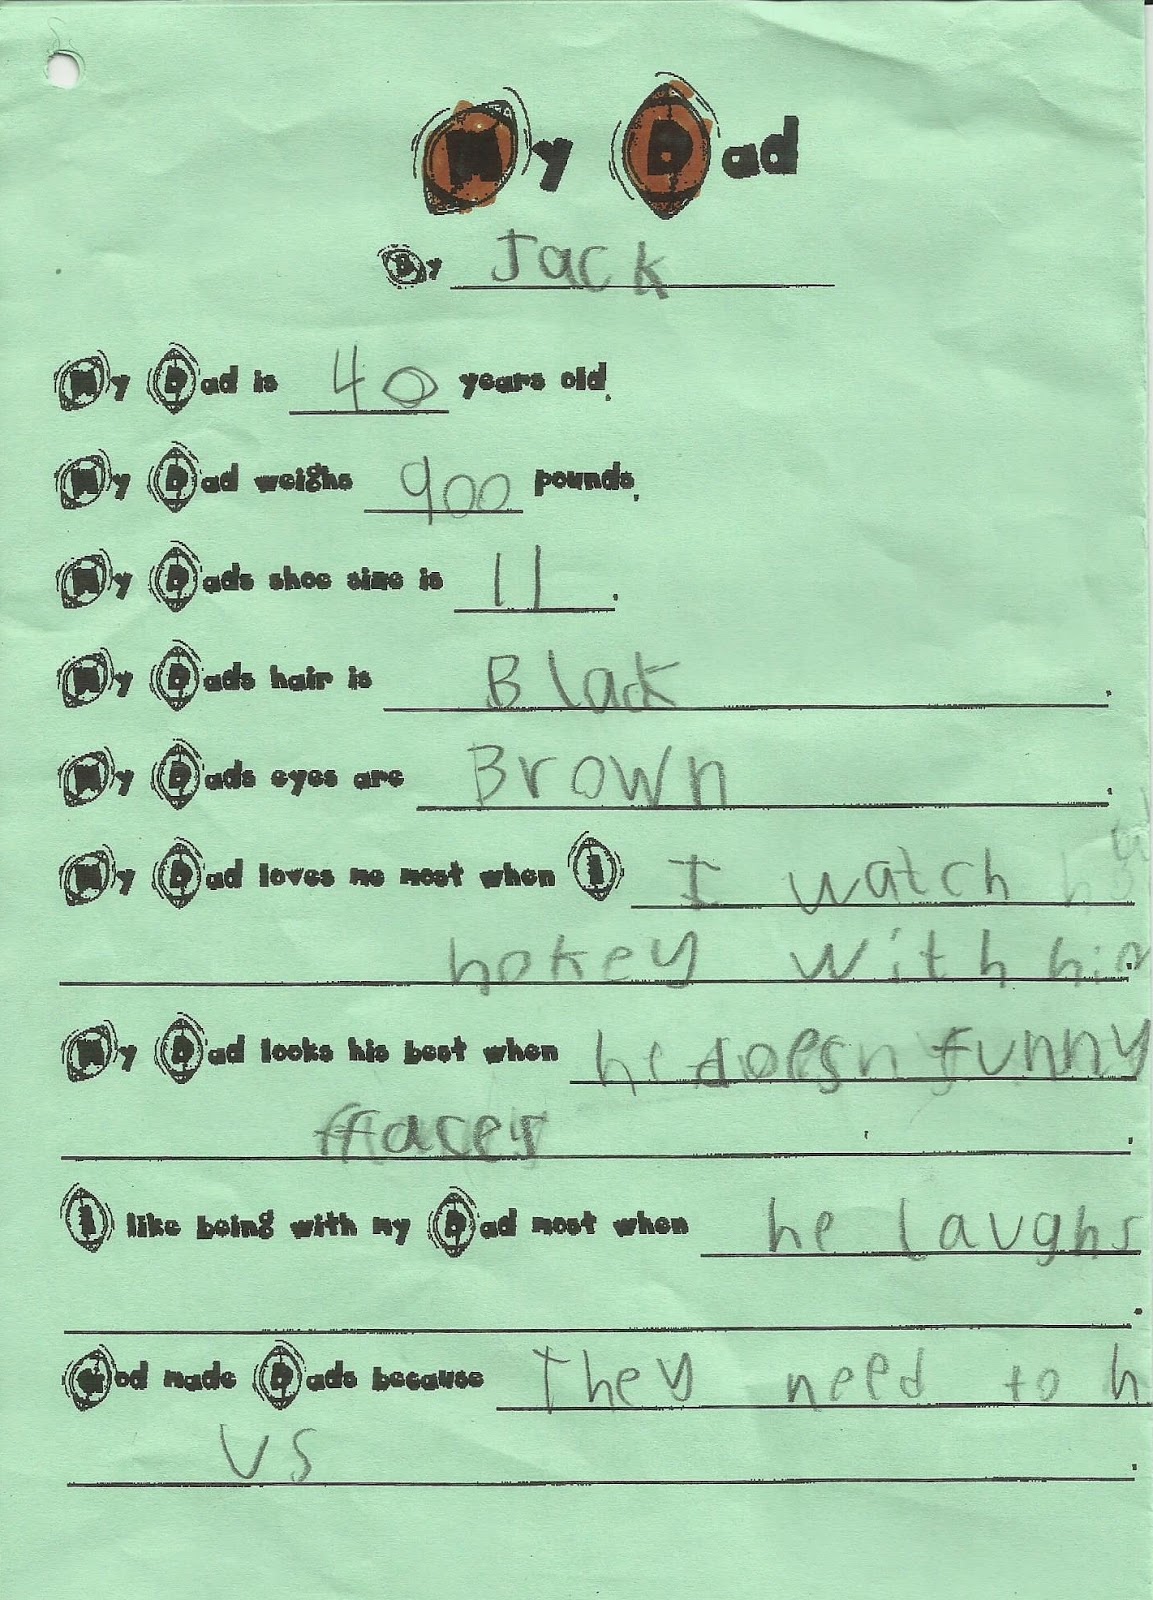 My Dad
By Jack
My Dad is 40 years old.
My Dad weighs 900 pounds.
My Dads shoe size is 11.
My Dads hair is Black.
My Dads eyes are Brown.
My Dad loves me most when I I watch
hokey with him.
My Dad looks his best when he does funny
faces.
I like being with my Dad most when he laughs
.
God made Dads because They need to
us.